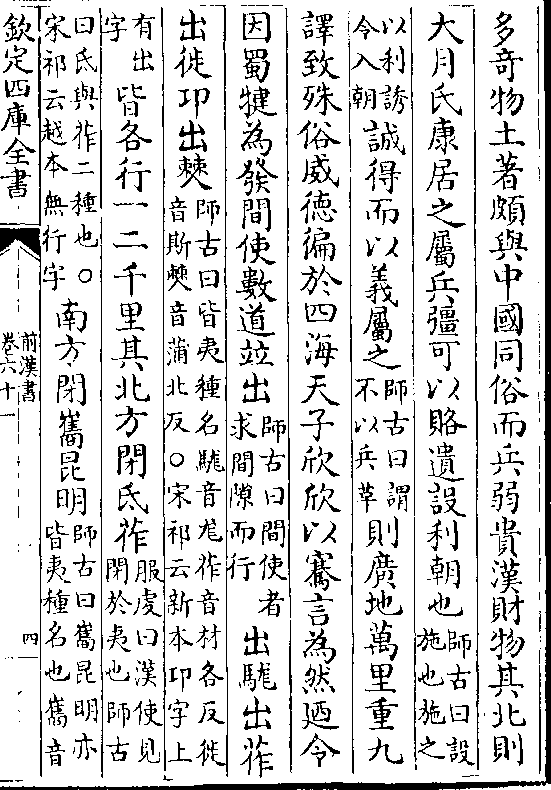 多奇物土著頗與中國同俗而兵弱貴漢財物其北則
大月氏康居之屬兵彊可以賂遺設利朝也師古曰設施也施之
以利誘令入朝誠得而以義屬之師古曰謂不以兵革則廣地萬里重九
譯致殊俗威德徧於四海天子欣欣以騫言為然廼令
因蜀犍為發間使數道並出師古曰間使者求間隙而行出駹出莋
出徙卭出僰師古曰皆夷種名駹音尨莋音材各反徙音斯僰音蒲北反○宋祁云新本卭字上
有出字皆各行一二千里其北方閉氐莋服虔曰漢使見閉於夷也師古
曰氐與莋二種也○宋祁云越本無行字南方閉巂昆明師古曰巂昆明亦皆夷種名也巂音
欽定四庫全書
前漢書
卷六十一
四